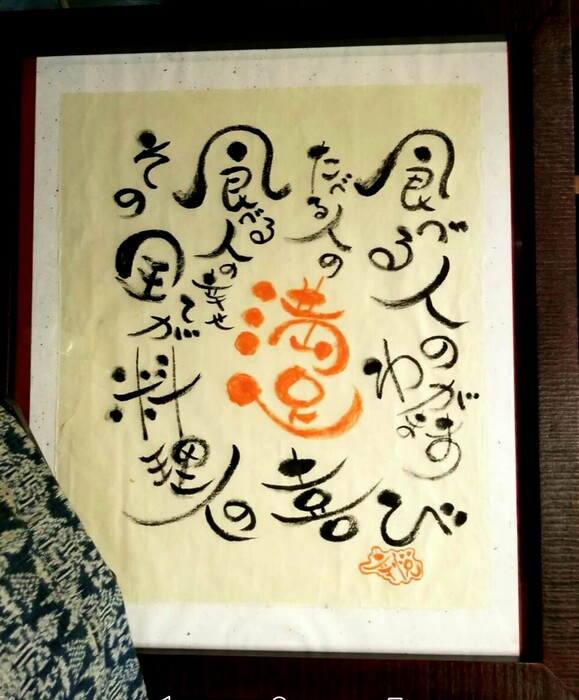 食べる人のわがまま
たべる人の
満足
食べる人の幸せ
その全てが
料理の喜び